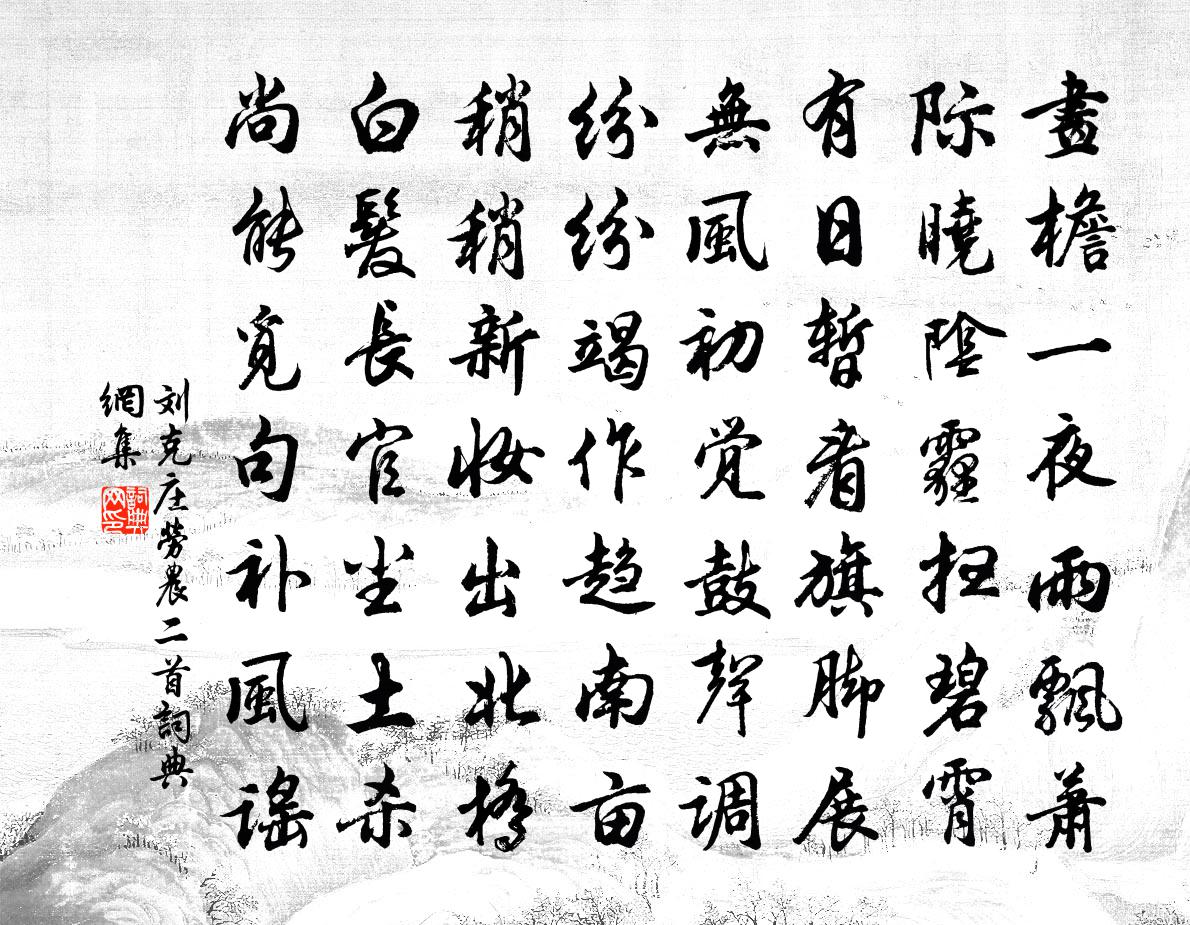 畫檐一夜雨飄蕭
际曉陰霾扫碧霄
有日暫看旗脚展
無風初觉鼓聲调
纷纷竭作趋南亩
稍稍新妆出北橋
白髮長官尘土杀
尚能覓句补風謠
刘克庄勞農二首詞典
網集
詞典
网印